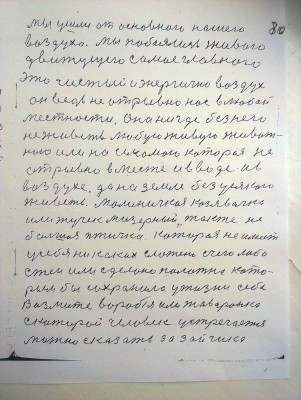 80
мы ушли от основного нашего
воздуха. мы побоялись живого
двигущего самое главного
Это чистый и энергично воздух
он ведь не отрывно нас в любой
местности, Она нигде без него
не живеть любую живую живот-
ною или насекомого которая не
отрывно вместе и в воде и в
воздухе, да на земле без усякого
живеть. Малиничкая козявачка
или жучек мизерный также не
большая птичка. Которая не имеить
у себя никаких сложено с чего либо
стен или сделано полотна кото-
рым бы сохраняла у жизни себе
Возмите воробья или жаваронка
с которой человек устречается
можно сказать за зайчика